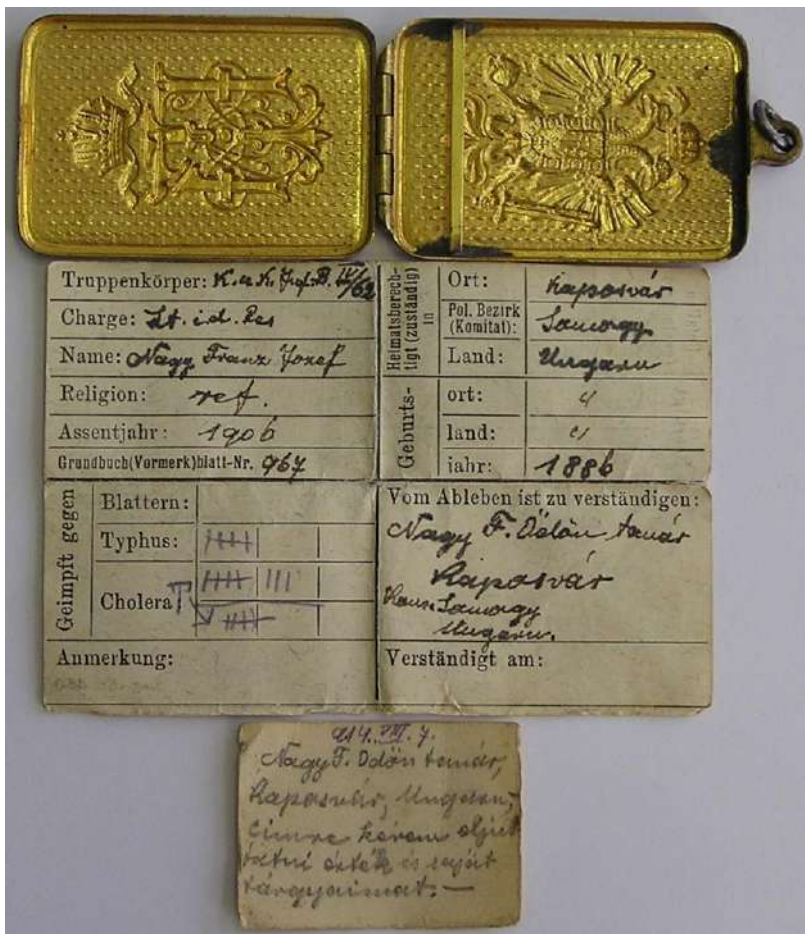 Truppenkörper: K. u. K. Inf. B. IV/62
Charge: Lt. i. d. Res
Name: Nagy Franz Jozef
Religion: ref.
Assentjahr: 1906
Grundbuch(Vormerk)blatt-Nr. 967
Heimatsberech-
tigt (zuständig)
in
Ort: Kaposvár
Pol. Bezirk
(Komitat): Somogy
Land: Ungarn
Geburts-
ort: "
land: "
jahr: 1886
Geimpft gegen
Blattern:
Typhus:
Cholera
Anmerkung:
Vom Ableben ist zu verständigen:
Nagy F. Ödön tanár
Kaposvár
Kom. Somogy
Ungarn.
Verständigt am:
914. VIII. 7.
Nagy F. Ödön tanár,
Kaposvár, Ungarn,
címre kérem
és saját
tárgyaimat. —